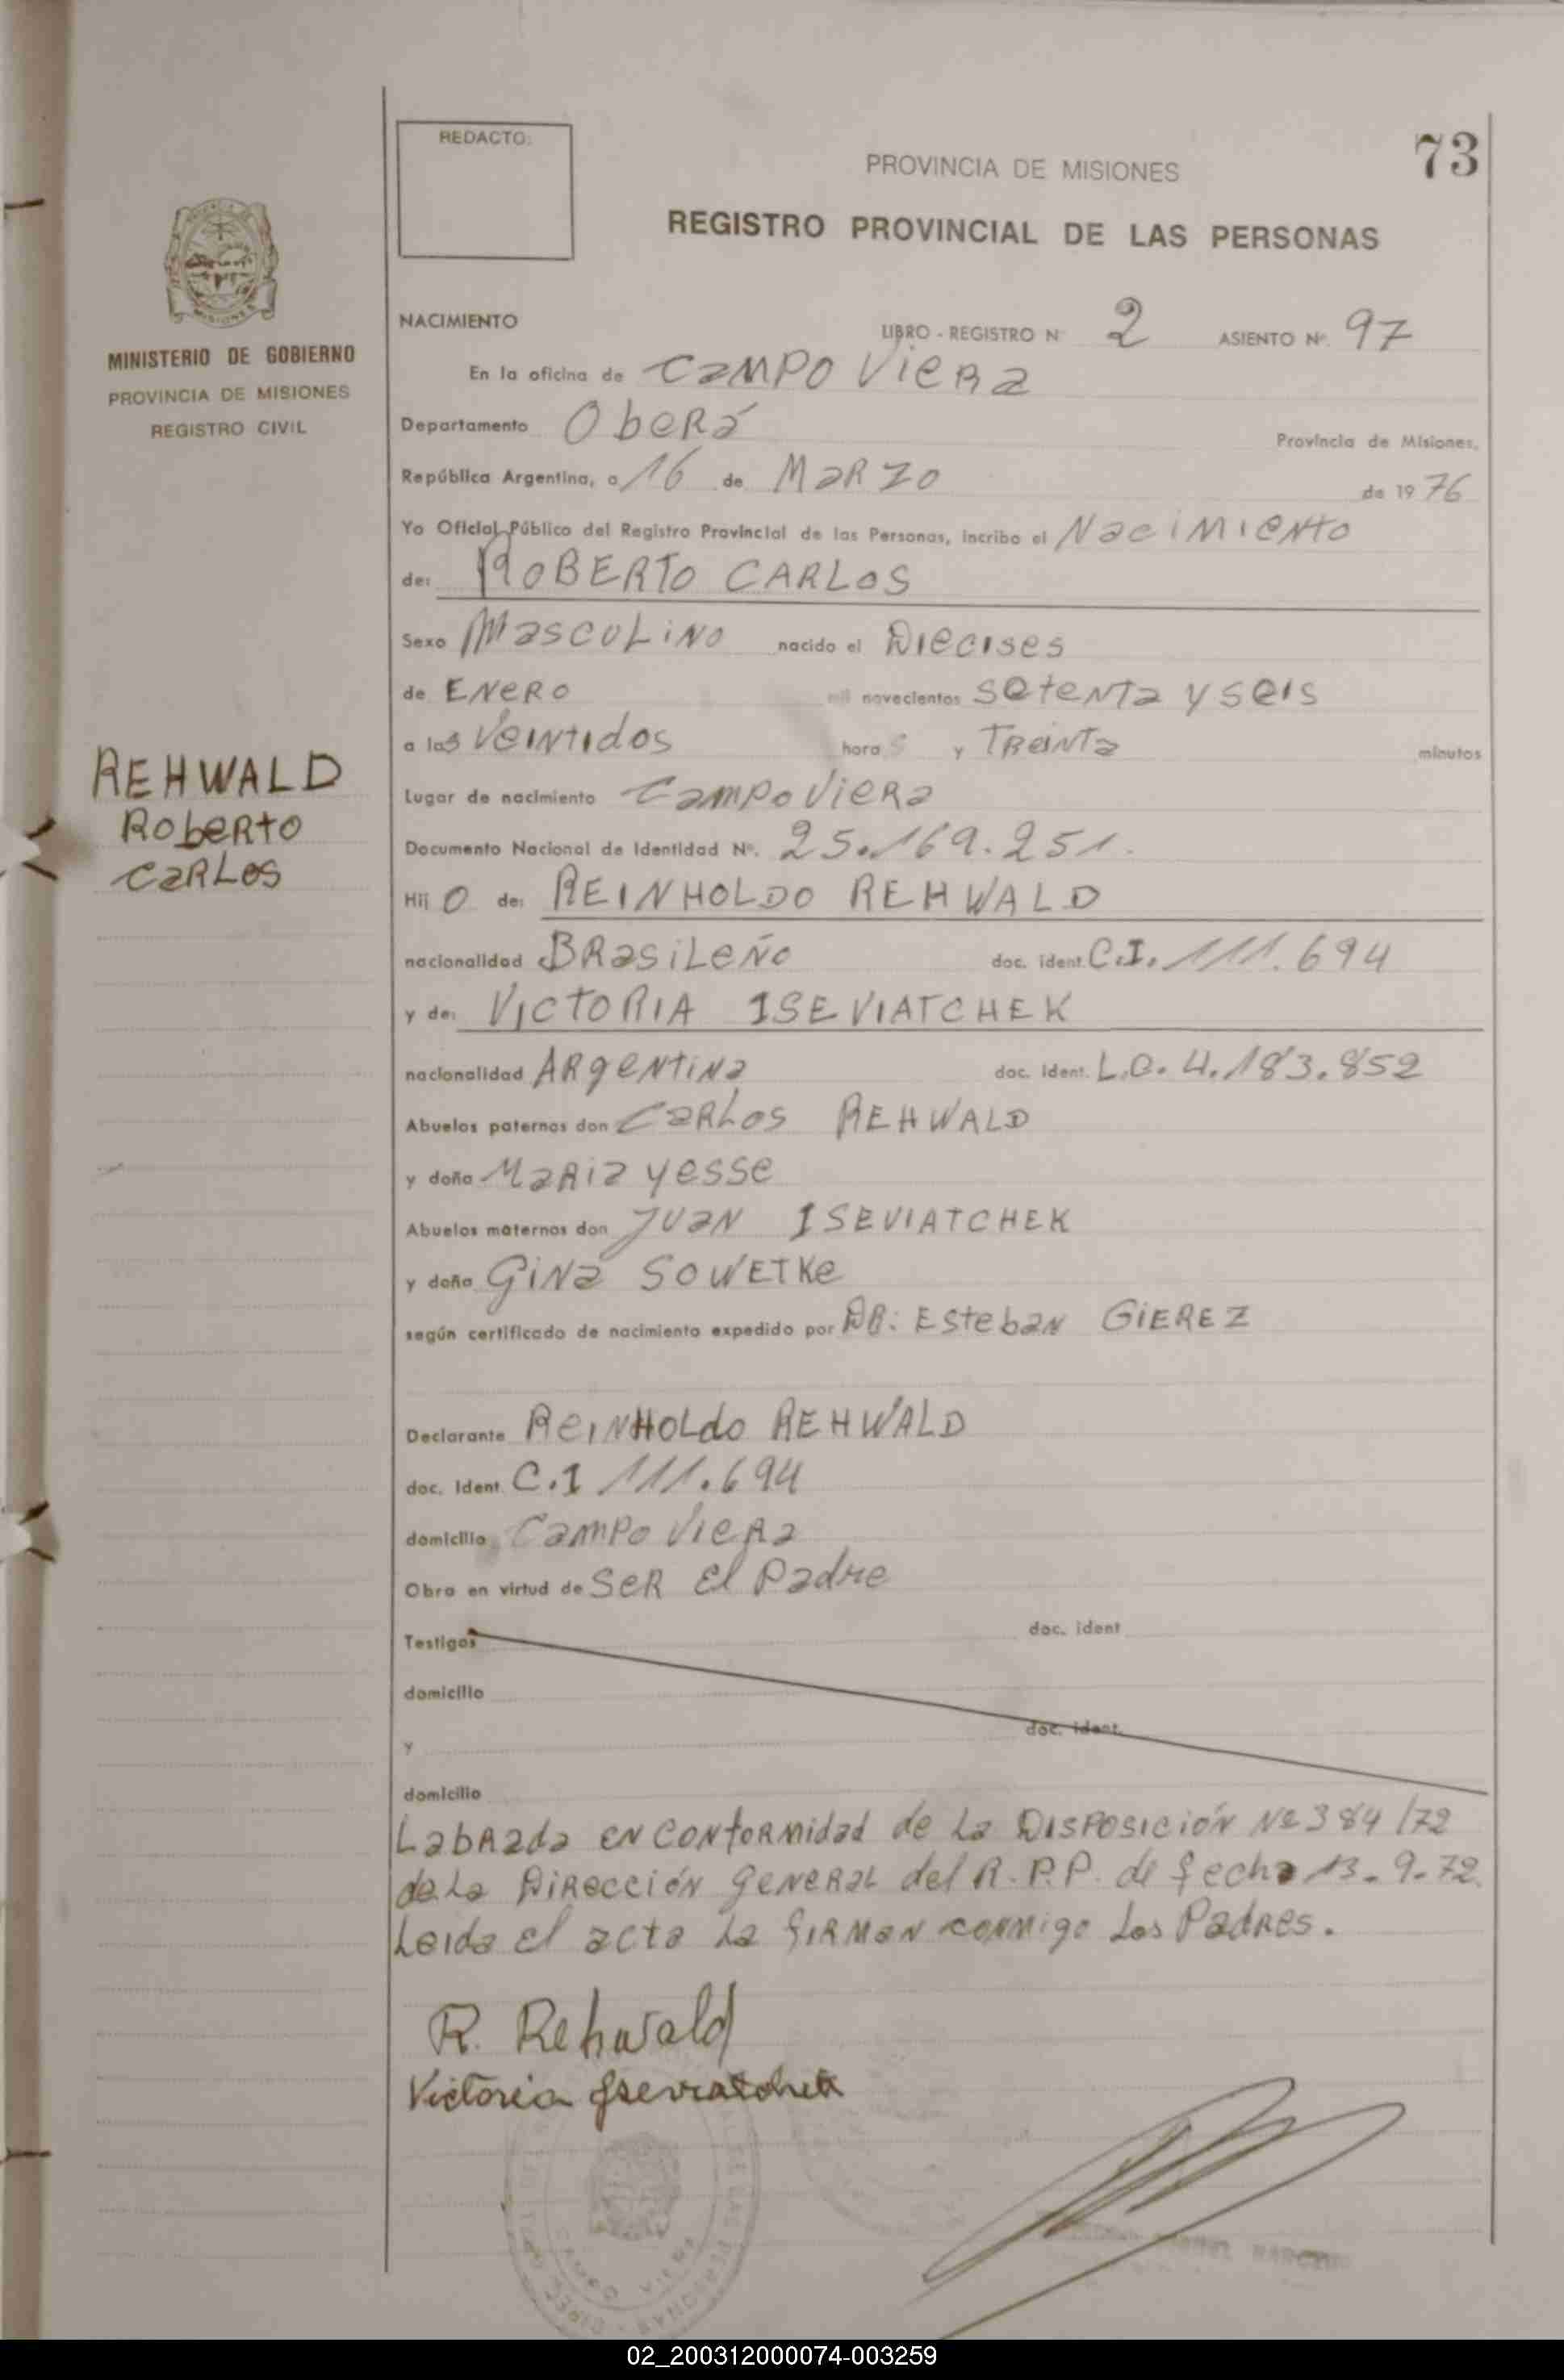 73
REDACTO:
PROVINCIA DE MISIONES
REGISTRO PROVINCIAL DE LAS PERSONAS
MISIONES
MINISTERIO DE GOBIERNO
PROVINCIA DE MISIONES
REGISTRO CIVIL
NACIMIENTO
LIBRO - REGISTRO Nº 2 ASIENTO Nº. 97
En la oficina de Campo Viera
Departamento Oberá Provincia de Misiones.
República Argentina, a 16 de Marzo de 1976
Yo Oficial Público del Registro Provincial de las Personas, incribo el Nacimiento
de: ROBERTO CARLOS
Sexo Masculino nacido el Diecises
de ENERO mil novecientos setenta y seis
a las Veintidos horas y Treinta minutos
REHWALD
Roberto
Carlos
Lugar de nacimiento Campo Viera
Documento Nacional de Identidad Nº. 25.169.251.
Hij O de: REINHOLDO REHWALD
nacionalidad Brasileño doc. ident. C.I. 111.694
y de: VICTORIA ISEVIATCHEK
nacionalidad Argentina doc. ident. L.C. 4.183.852
Abuelos paternos don Carlos REHWALD
y doña Maria Yesse
Abuelos maternos don Juan ISEVIATCHEK
y doña Gina SOWETKe
según certificado de nacimiento expedido por DR: Esteban GIEREZ
Declarante REINHOLdo REHWALD
doc. Ident. C.I 111.694
domicilio Campo Viera
Obra en virtud de Ser el Padre
Testigos doc. ident
domicilio
y doc. ident.
domicilio
Labrada en conformidad de la Disposición Nº 384/72
de la Dirección General del R.P.P. de fecha 13-9-72.
Leida el acta la firman conmigo los Padres.
R. Rehwald
Victoria Iseviatchek
CAMPO VIERA
02_200312000074-003259